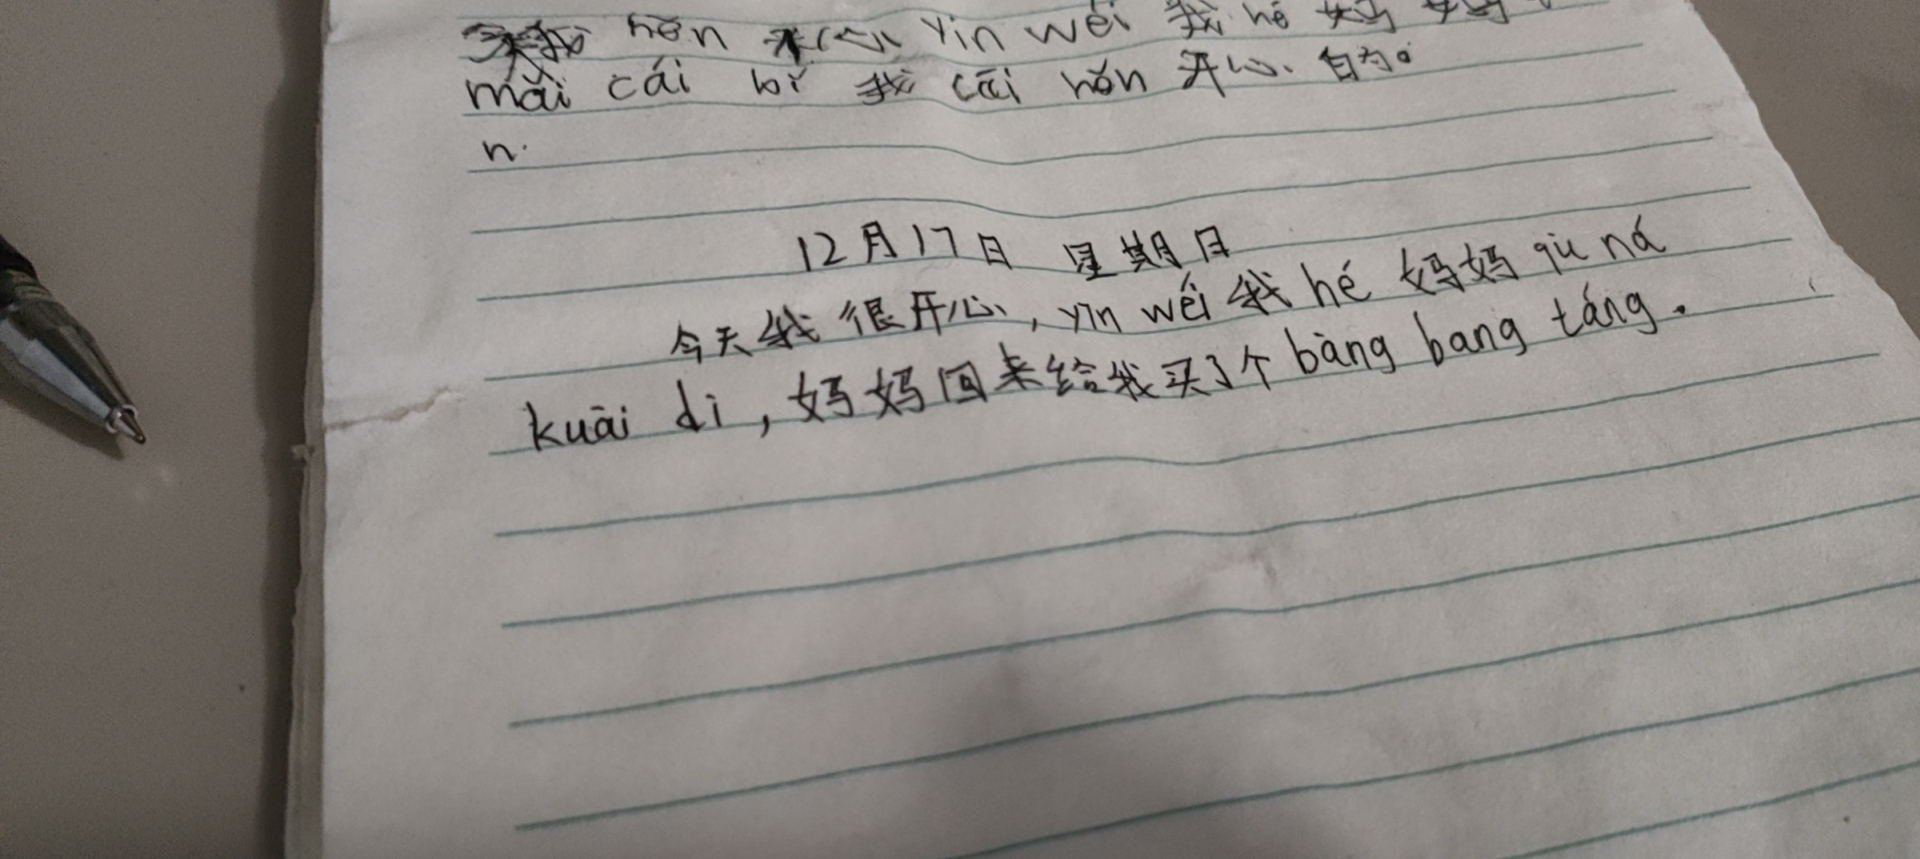 我 hěn 开心 yīn wèi 我 hé 妈妈
mǎi cái bǐ 我 cái hěn 开心、的。
n.
12月17日 星期日
今天我很开心, yīn wéi 我 hé 妈妈 qù ná
kuāi dì, 妈妈回来给我买了个 bàng bang táng.